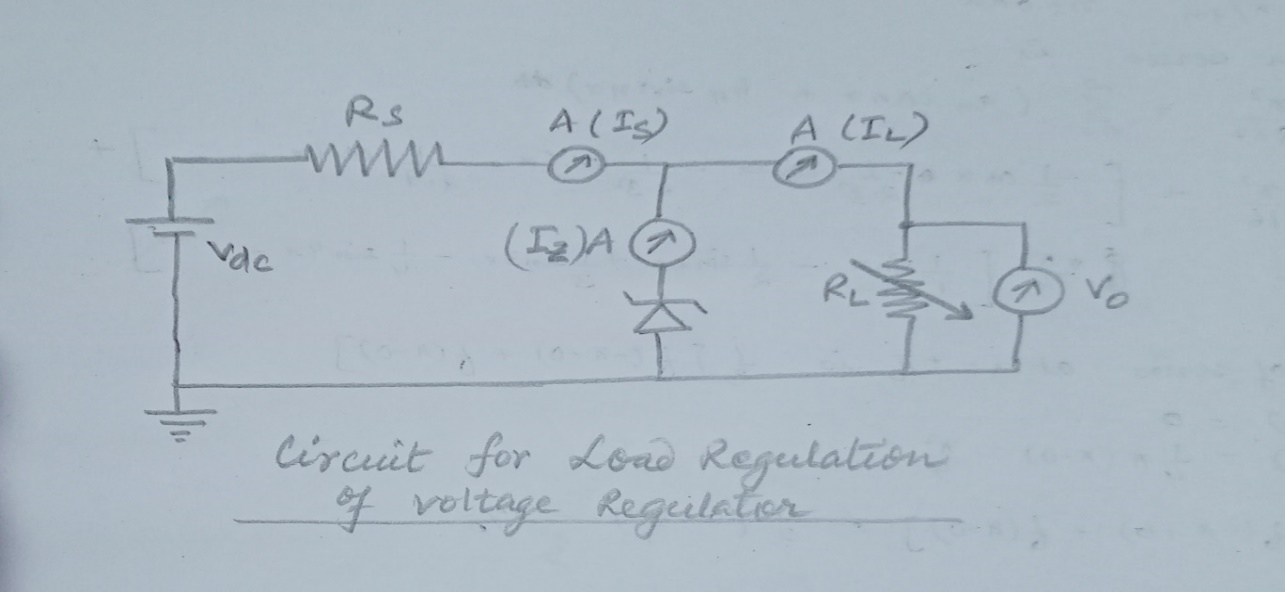 Rs
A (Is)
A (IL)
Vdc
(Iz)A
RL
Vo
Circuit for Load Regulation
of voltage Regulation